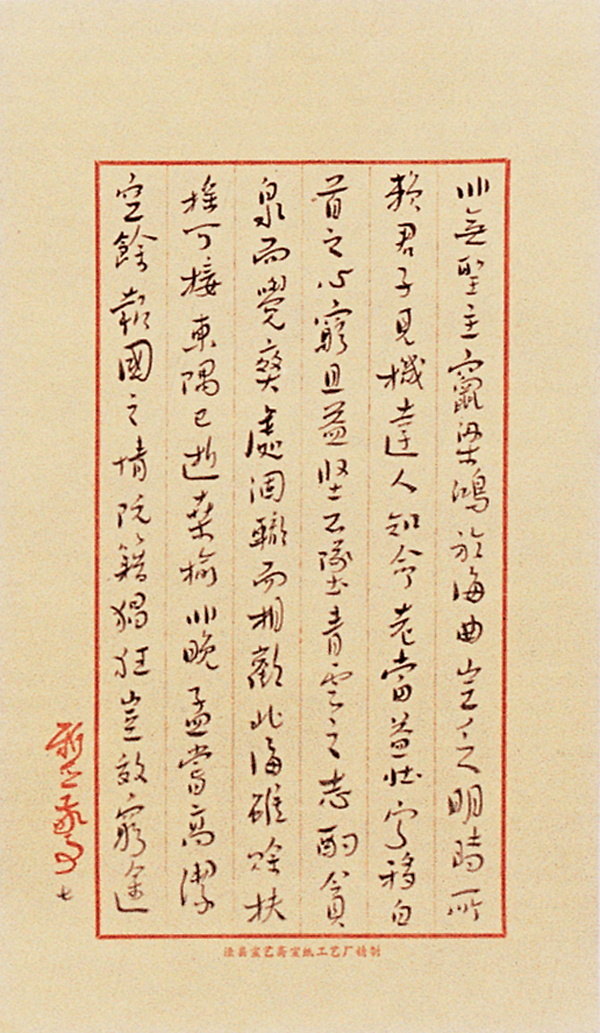 非無聖主竄梁鴻於海曲豈乏明時所
賴君子見機達人知命老當益壯寧移白
首之心窮且益堅不墜青雲之志酌貪
泉而覺爽處涸轍而相歡北海雖賒扶
搖可接東隅已逝桑榆非晚孟嘗高潔
空餘報國之情阮籍猖狂豈效窮途
七
泾县宣艺斋宣纸工艺厂精制